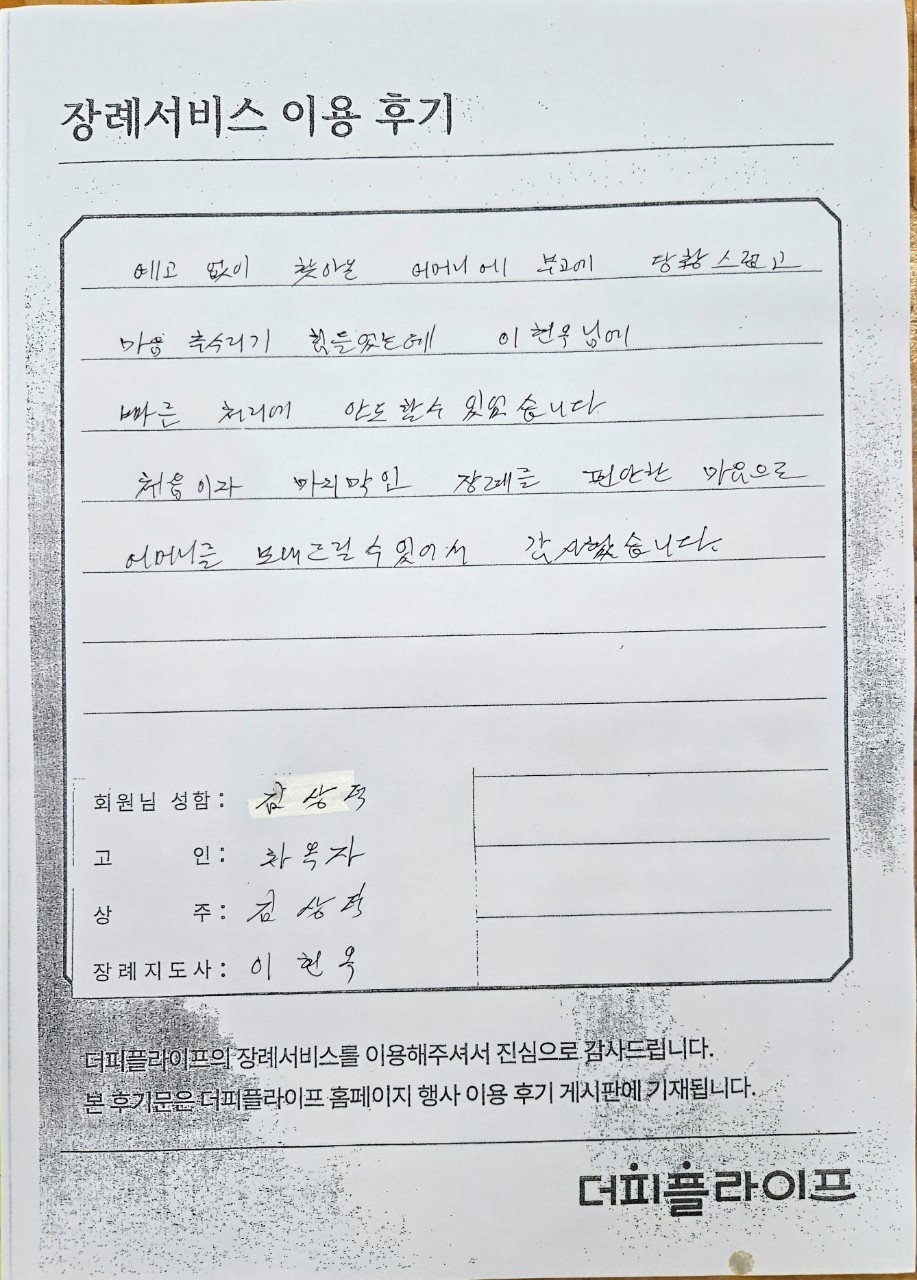 장례서비스 이용 후기
예고 없이 찾아온 어머니에 부고에 당황스럽고
마음 추수리기 힘들었는데 이현옥님에
빠른 처리에 안도할수 있었습니다
처음이자 마지막인 장례를 편안한 마음으로
어머니를 보내드릴수있어서 감사했습니다.
회원님 성함: 김상덕
고 인: 차옥자
상 주: 김상덕
장례지도사: 이현옥
더피플라이프의 장례서비스를 이용해주셔서 진심으로 감사드립니다.
본 후기문은 더피플라이프 홈페이지 행사 이용 후기 게시판에 기재됩니다.
더피플라이프